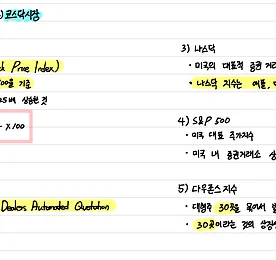 코스닥시장
Price Index)
기준
상승한 것
× 100
Dealers Automated Quotation
3) 나스닥
· 미국의 대표적 증권 거래
· 나스닥 지수는 애플,
4) S&P 500
· 미국 대표 주가지수
· 미국 내 증권거래소
5) 다우존스 지수
· 대형주 30곳을 묶어서
· 30곳이라는 것의 상징성